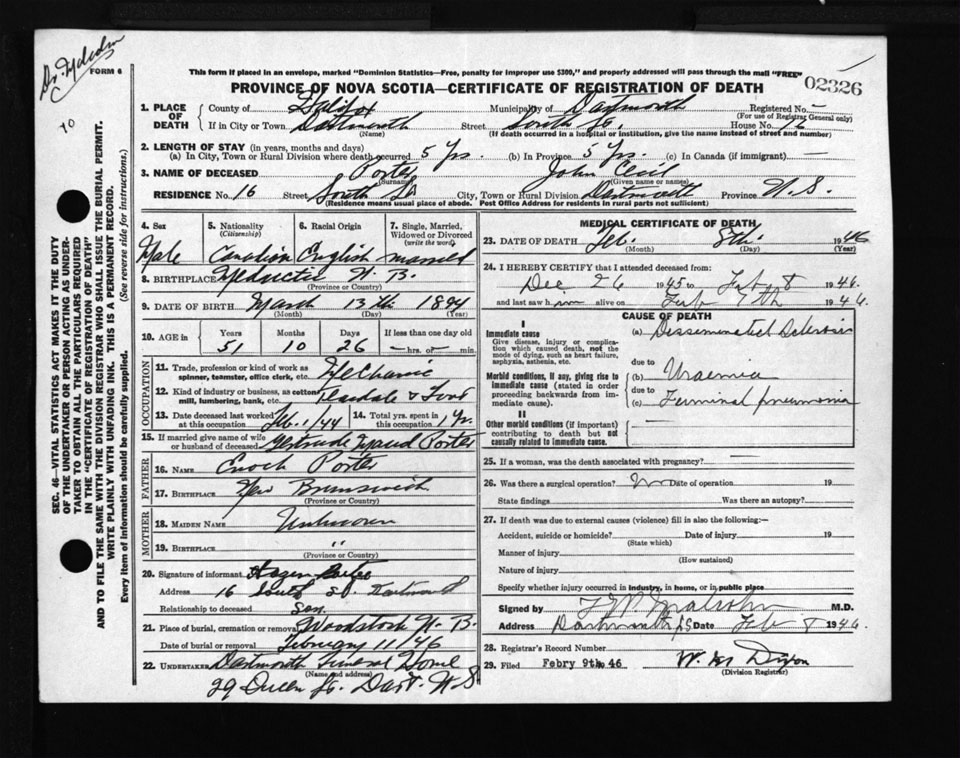 Dr. Malcolm
FORM 6
This form if placed in an envelope, marked "Dominion Statistics—Free, penalty for improper use $300," and properly addressed will pass through the mail "FREE"
02326
PROVINCE OF NOVA SCOTIA—CERTIFICATE OF REGISTRATION OF DEATH
1. PLACE OF DEATH County of Halifax Municipality of Dartmouth Registered No. —
(For use of Registrar General only)
If in City or Town Dartmouth Street South St. House No. 16
(Name) (If death occurred in a hospital or institution, give the name instead of street and number)
2. LENGTH OF STAY (in years, months and days)
(a) In City, Town or Rural Division where death occurred 5 Yrs. (b) In Province 5 Yrs. (c) In Canada (if immigrant) —
3. NAME OF DECEASED Porter John Cecil
(Surname) (Given name or names)
RESIDENCE No. 16 Street South St City, Town or Rural Division Dartmouth Province N.S.
(Residence means usual place of abode. Post Office Address for residents in rural parts not sufficient)
SEC. 46—VITAL STATISTICS ACT MAKES IT THE DUTY
OF THE UNDERTAKER OR PERSON ACTING AS UNDER-
TAKER TO OBTAIN ALL THE PARTICULARS REQUIRED
IN THE "CERTIFICATE OF REGISTRATION OF DEATH"
AND TO FILE THE SAME WITH THE DIVISION REGISTRAR WHO SHALL ISSUE THE BURIAL PERMIT.
WRITE PLAINLY WITH UNFADING INK. THIS IS A PERMANENT RECORD.
Every item of information should be carefully supplied. (See reverse side for instructions.)
4. Sex 5. Nationality 6. Racial Origin 7. Single, Married,
(Citizenship) Widowed or Divorced
(write the word)
Male Canadian English married
8. BIRTHPLACE Meductic N. B.
(Province or Country)
9. DATE OF BIRTH March 13th 1894
(Month) (Day) (Year)
10. AGE in Years Months Days If less than one day old
51 10 26 — hrs. or — min.
OCCUPATION
11. Trade, profession or kind of work as
spinner, teamster, office clerk, etc. Mechanic
12. Kind of industry or business, as cotton
mill, lumbering, bank, etc.
13. Date deceased last worked at this occupation Feb. 1/44 14. Total yrs. spent in this occupation 1 Yr.
15. If married give name of wife
or husband of deceased Gertrude Maud Porter
FATHER
16. NAME Enoch Porter
17. BIRTHPLACE New Brunswick
(Province or Country)
MOTHER
18. MAIDEN NAME Unknown
19. BIRTHPLACE "
(Province or Country)
20. Signature of informant Hazen Porter
Address 16 South St. Dartmouth
Relationship to deceased Son.
21. Place of burial, cremation or removal Woodstock N. B.
Date of burial or removal February 11/46
22. UNDERTAKER Dartmouth Funeral Home
(Name and address)
29 Queen St. Dart. N S
MEDICAL CERTIFICATE OF DEATH
23. DATE OF DEATH Feb. 8th. 1946
(Month) (Day) (Year)
24. I HEREBY CERTIFY that I attended deceased from:
Dec 26 1945 to Feb 8 1946.
and last saw him alive on Feb 7th 1946
CAUSE OF DEATH
I
Immediate cause (a) Disseminated Sclerosis
Give disease, injury or complica-
tion which caused death, not the
mode of dying, such as heart failure,
asphyxia, asthenia, etc.
due to
Morbid conditions, if any, giving rise to (b) Uraemia
immediate cause (stated in order due to
proceeding backwards from im- (c) Terminal pneumonia
mediate cause).
II
Other morbid conditions (if important)
contributing to death but not
causally related to immediate cause.
25. If a woman, was the death associated with pregnancy? —
26. Was there a surgical operation? No Date of operation 19
State findings Was there an autopsy?
27. If death was due to external causes (violence) fill in also the following:—
Accident, suicide or homicide? Date of injury 19
(State which)
Manner of injury
(How sustained)
Nature of injury
Specify whether injury occurred in industry, in home, or in public place
Signed by M.D.
Address Dartmouth N.S Date Feb 8 1946.
28. Registrar's Record Number
29. Filed Febry 9th 46 W. M Dixon
(Division Registrar)